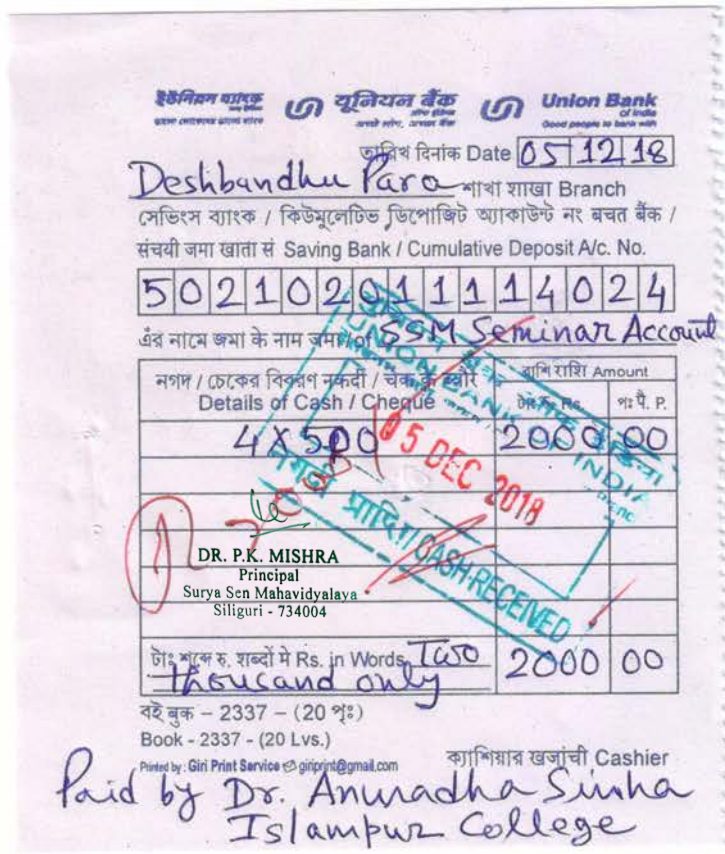 ইউনিয়ন ব্যাংক यूनियन बैंक Union Bank
of India
अच्छे लोग, अच्छा बैंक Good people to bank with
তারিখ दिनांक Date 05 12 18
Deshbandhu Para শাখা शाखा Branch
সেভিংস ব্যাংক / কিউমুলেটিভ ডিপোজিট অ্যাকাউন্ট নং बचत बैंक /
संचयी जमा खाता सं Saving Bank / Cumulative Deposit A/c. No.
502102011114024
এঁর নামে জমা के नाम जमा of SSM Seminar Account
নগদ / চেকের বিবরণ नकदी / चेक के ब्यौरे রাশি राशि Amount
Details of Cash / Cheque টাঃ रु. Rs. পঃ पै. P.
4 X 500 2000 00
UNION BANK OF INDIA
05 DEC 2018
नगदी प्राप्ति / CASH RECEIVED
DR. P.K. MISHRA
Principal
Surya Sen Mahavidyalaya
Siliguri - 734004
টাঃ শব্দে रु. शब्दों मे Rs. in Words Two 2000 00
thousand only
বই बुक – 2337 – (20 পৃঃ)
Book - 2337 - (20 Lvs.)
Printed by : Giri Print Service giriprint@gmail.com ক্যাশিয়ার खजांची Cashier
Paid by Dr. Anuradha Sinha
Islampur College